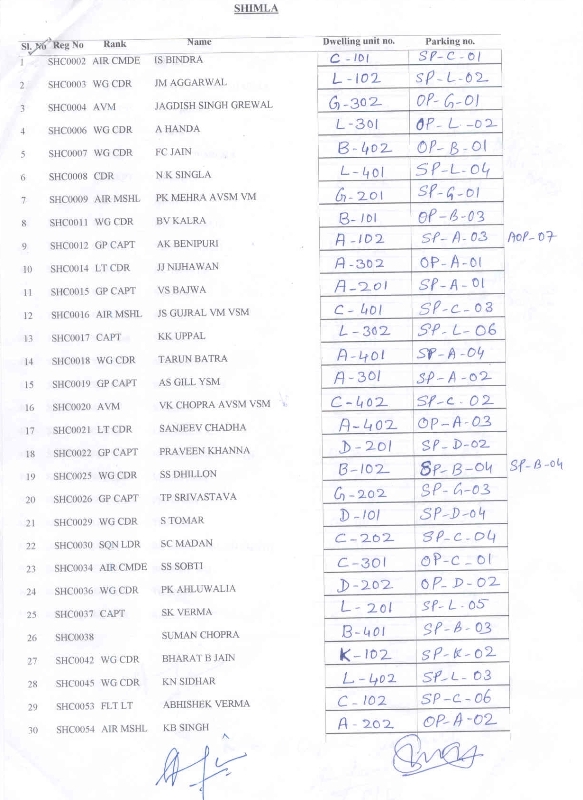 SHIMLA
Sl. No Reg No Rank Name Dwelling unit no. Parking no.
1 SHC0002 AIR CMDE IS BINDRA C-101 SP-C-01
2 SHC0003 WG CDR JM AGGARWAL L-102 SP-L-02
3 SHC0004 AVM JAGDISH SINGH GREWAL G-302 OP-G-01
4 SHC0006 WG CDR A HANDA L-301 OP-L-02
5 SHC0007 WG CDR FC JAIN B-402 OP-B-01
6 SHC0008 CDR N K SINGLA L-401 SP-L-04
7 SHC0009 AIR MSHL PK MEHRA AVSM VM G-201 SP-G-01
8 SHC0011 WG CDR BV KALRA B-101 OP-B-03
9 SHC0012 GP CAPT AK BENIPURI A-102 SP-A-03 AOP-07
10 SHC0014 LT CDR JJ NIJHAWAN A-302 OP-A-01
11 SHC0015 GP CAPT VS BAJWA A-201 SP-A-01
12 SHC0016 AIR MSHL JS GUJRAL VM VSM C-401 SP-C-03
13 SHC0017 CAPT KK UPPAL L-302 SP-L-06
14 SHC0018 WG CDR TARUN BATRA A-401 SP-A-04
15 SHC0019 GP CAPT AS GILL YSM A-301 SP-A-02
16 SHC0020 AVM VK CHOPRA AVSM VSM C-402 SP-C-02
17 SHC0021 LT CDR SANJEEV CHADHA A-402 OP-A-03
18 SHC0022 GP CAPT PRAVEEN KHANNA D-201 SP-D-02
19 SHC0025 WG CDR SS DHILLON B-102 SP-B-04 SP-B-04
20 SHC0026 GP CAPT TP SRIVASTAVA G-202 SP-G-03
21 SHC0029 WG CDR S TOMAR D-101 SP-D-04
22 SHC0030 SQN LDR SC MADAN C-202 SP-C-04
23 SHC0034 AIR CMDE SS SOBTI C-301 OP-C-01
24 SHC0036 WG CDR PK AHLUWALIA D-202 OP-D-02
25 SHC0037 CAPT SK VERMA L-201 SP-L-05
26 SHC0038 SUMAN CHOPRA B-401 SP-B-03
27 SHC0042 WG CDR BHARAT B JAIN K-102 SP-K-02
28 SHC0045 WG CDR KN SIDHAR L-402 SP-L-03
29 SHC0053 FLT LT ABHISHEK VERMA C-102 SP-C-06
30 SHC0054 AIR MSHL KB SINGH A-202 OP-A-02